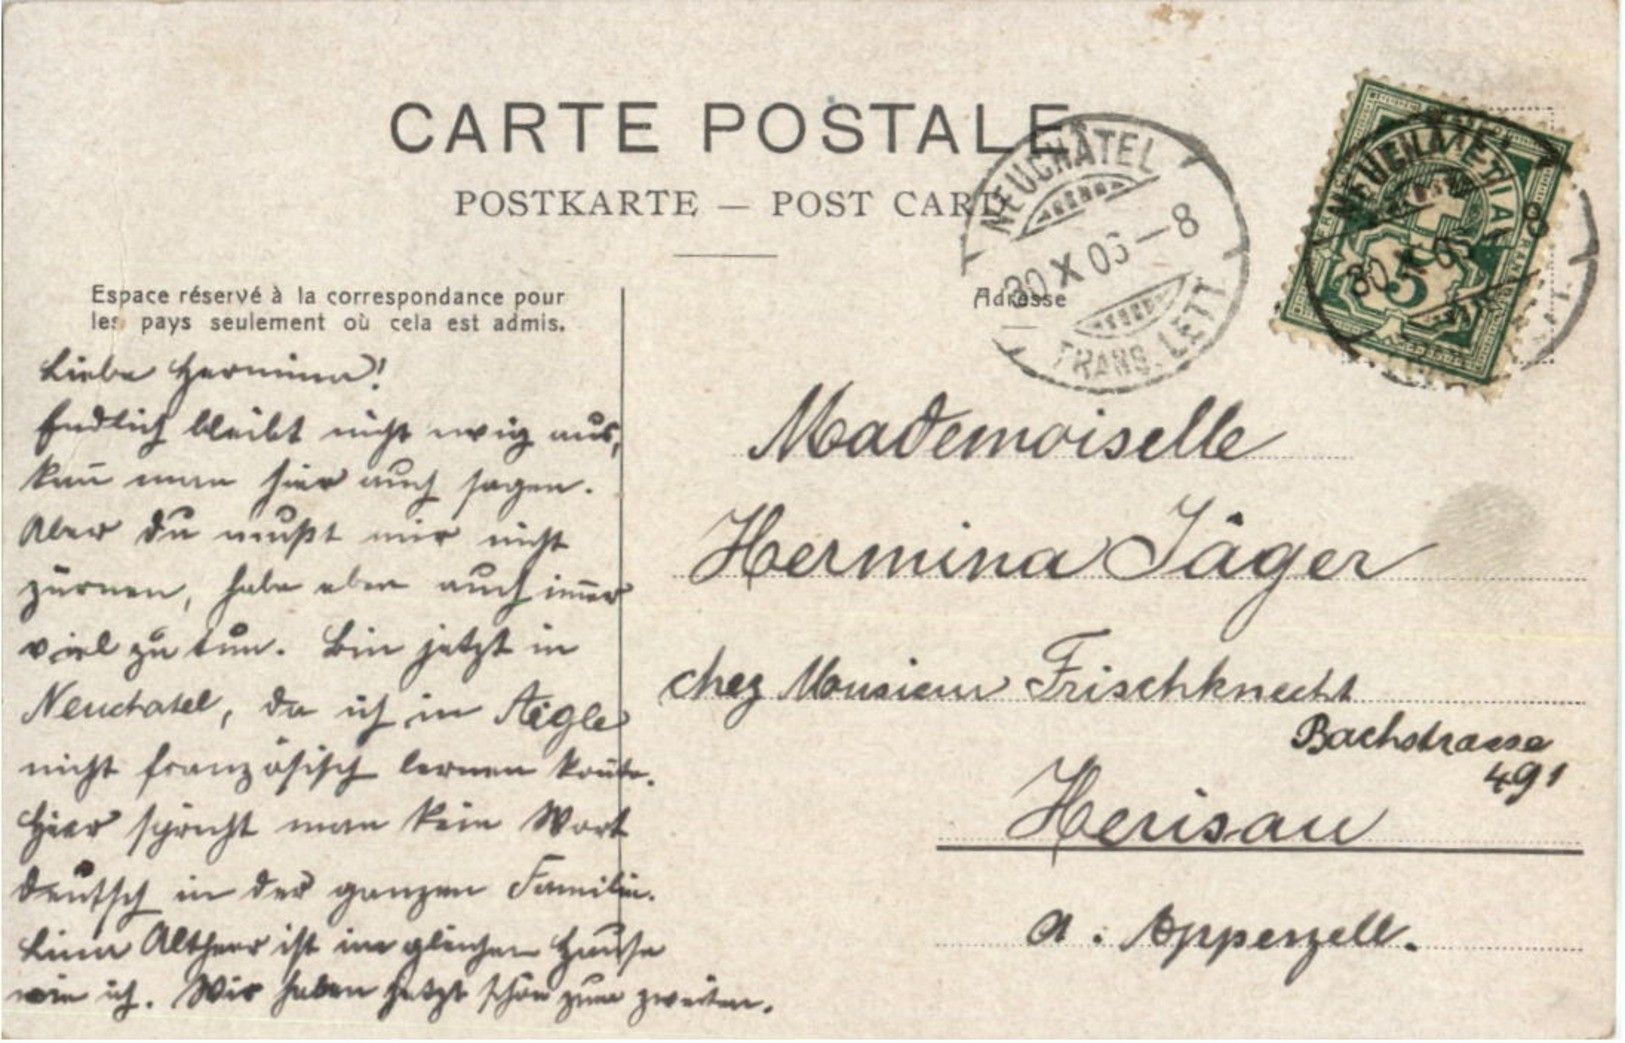 CARTE POSTALE
POSTKARTE — POST CARD
NEUCHÂTEL
30 X 06 — 8
TRANS. LETT.
5
Espace réservé à la correspondance pour
les pays seulement où cela est admis.
Adresse
Liebe Hermina!
Endlich bleibt nicht ewig aus,
kañ man hier auch sagen.
Aber du mußt mir nicht
zürnen, habe eben auch im̄er
viel zu tun. Bin jetzt in
Neuchatel, da ich in Aigle
nicht französisch lernen koñte.
Hier spricht man kein Wort
deutsch in der ganzen Familie.
Lina Altherr ist im gleichen Hause
wie ich. Wir haben jetzt schon zum zweiten.
Mademoiselle
Hermina Jäger
chez Monsieur Frischknecht
Bachstrasse
491
Herisau
a. Appenzell.